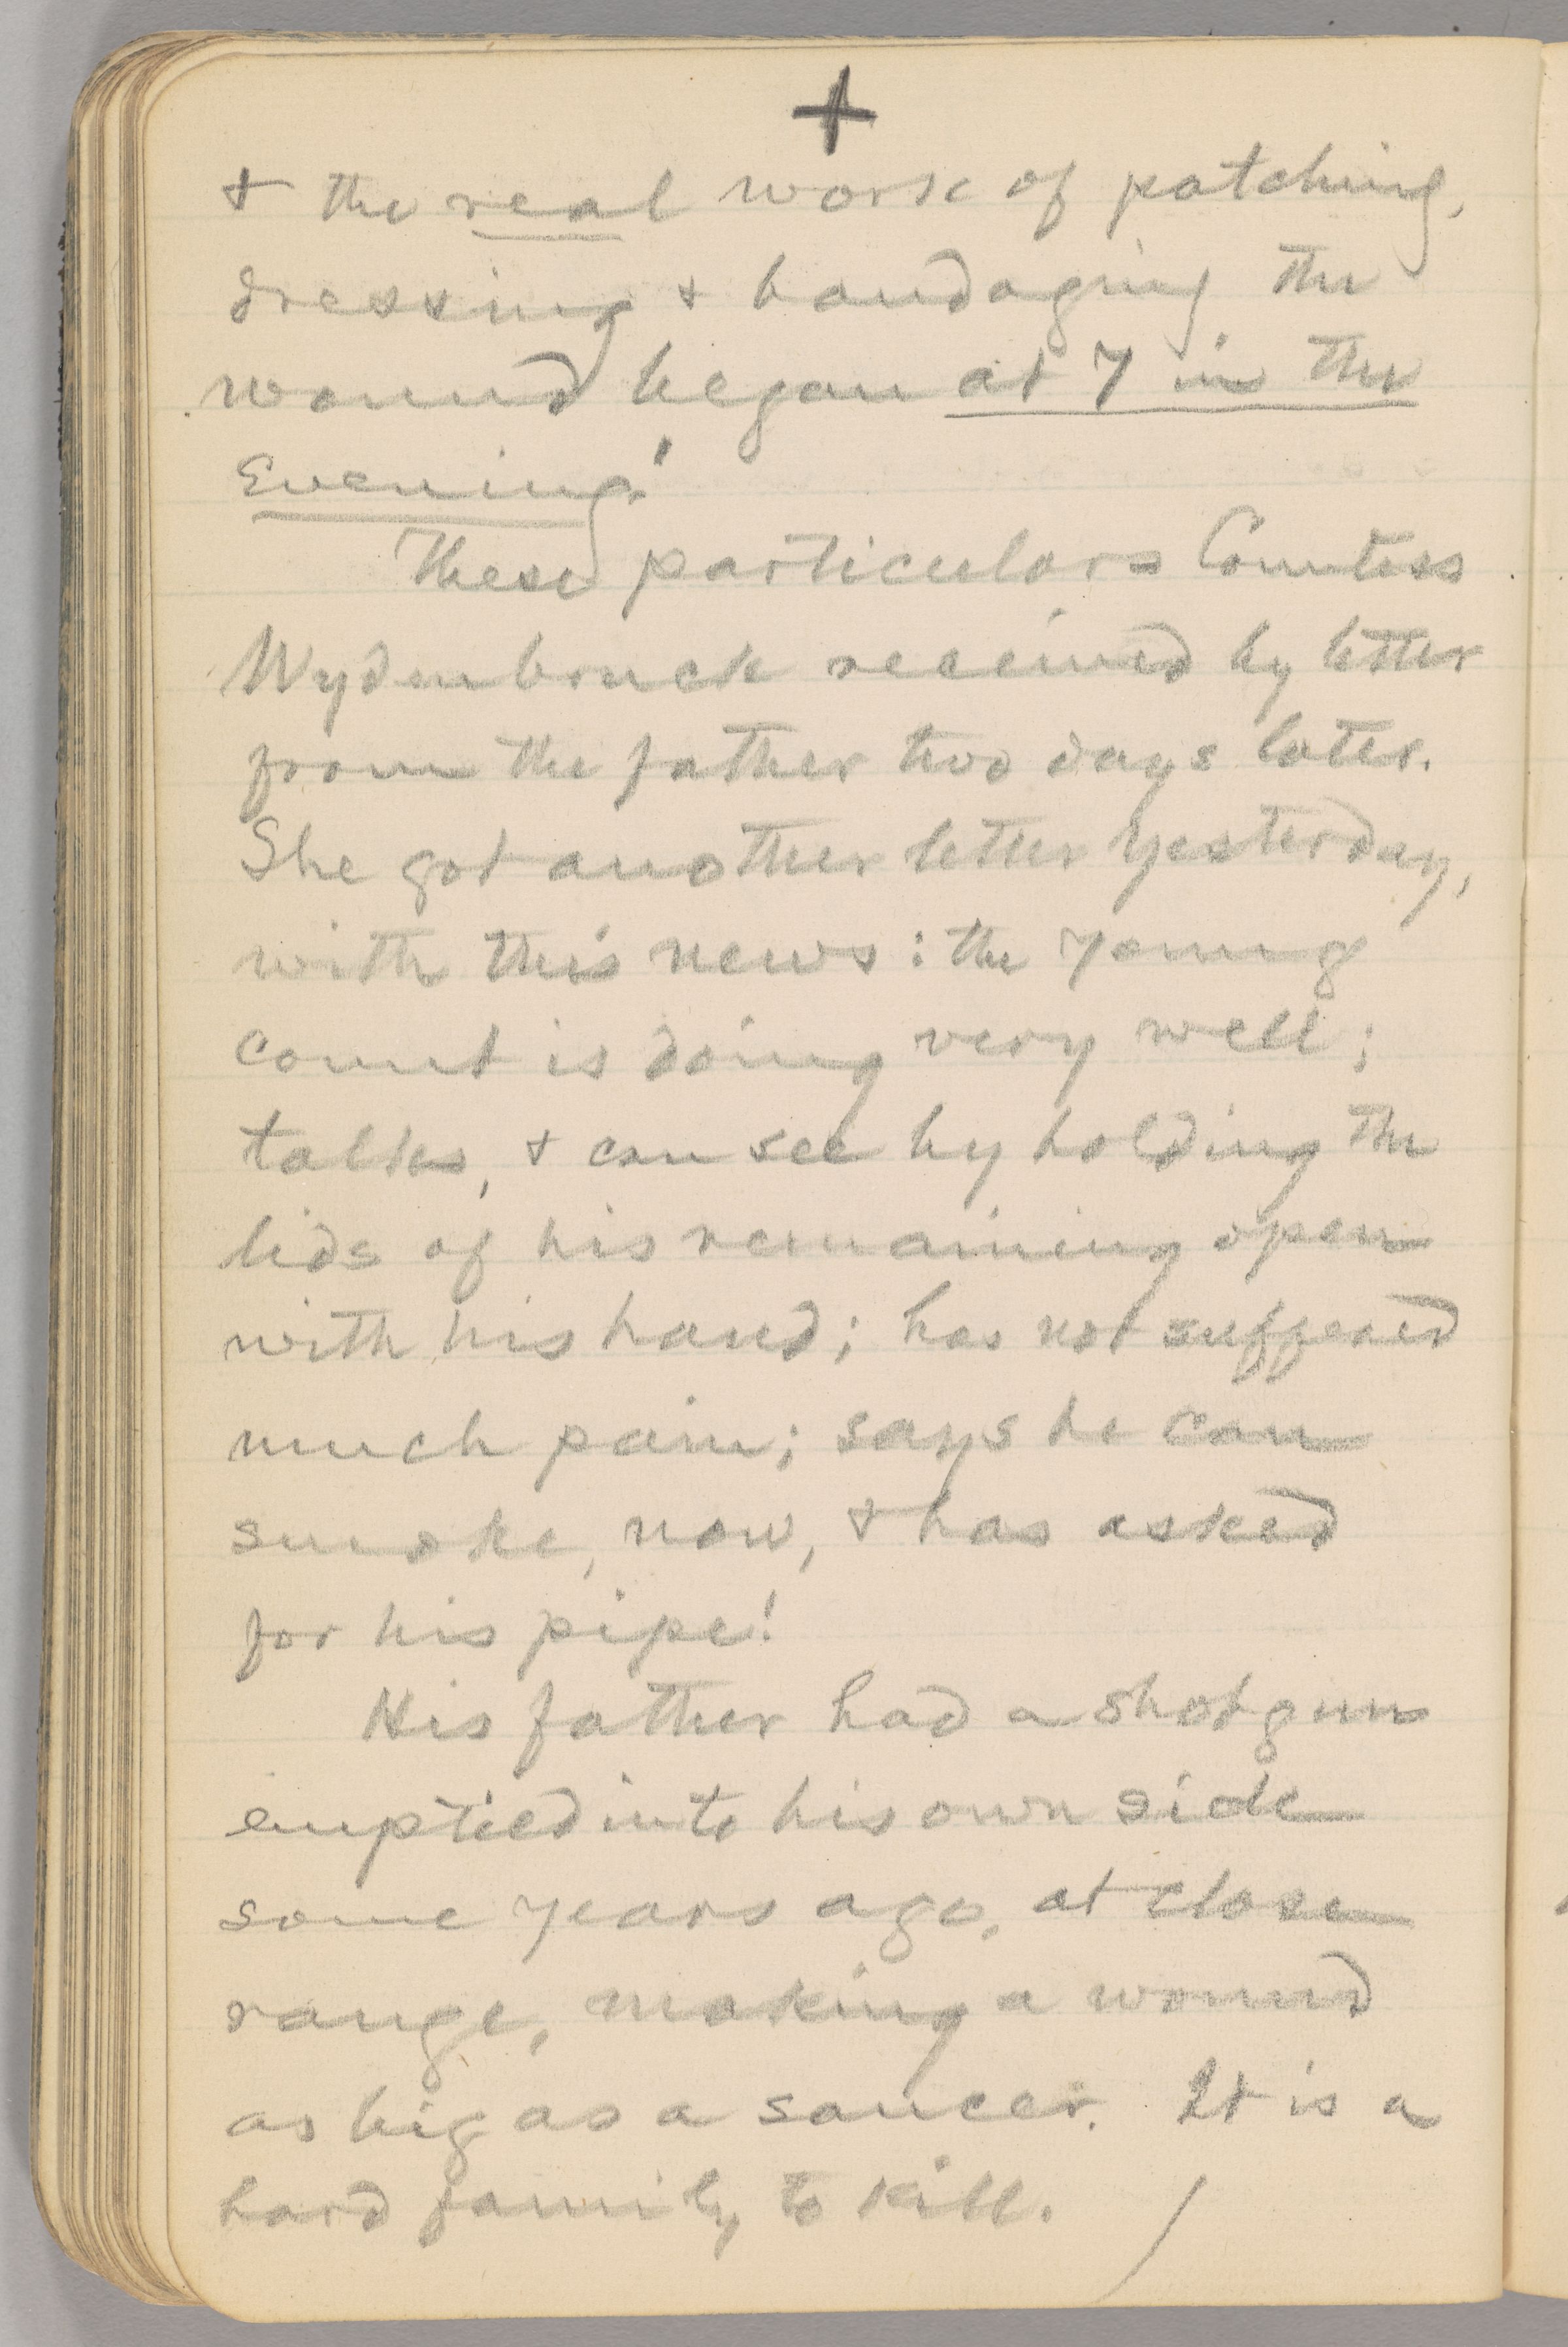 +
& the real work of patching,
dressing & bandaging the
wound began at 7 in the
Evening!
These particulars Countess
Wydenbruck received by letter
from the father two days later.
She got another letter yesterday,
with this news: the young
count is doing very well;
talks, & can see by holding the
lids of his remaining open
with his hand; has not suffered
much pain; says he can
smoke, now, & has asked
for his pipe!
His father had a shotgun
emptied into his own side
some years ago, at close
range, making a wound
as big as a saucer. It is a
hard family to kill. /